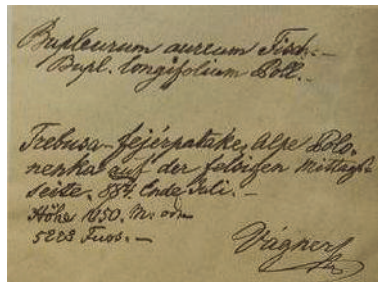 Bupleurum aureum Fisch. —
Bupl. longifolium Poll. —
Trebusa-fejérpatake, Alpe Polo-
nenka auf der felsigen Mittags-
seite. 884. Ende Juli. —
Höhe 1650. M. oder
5228 Fuss. —
Vágner